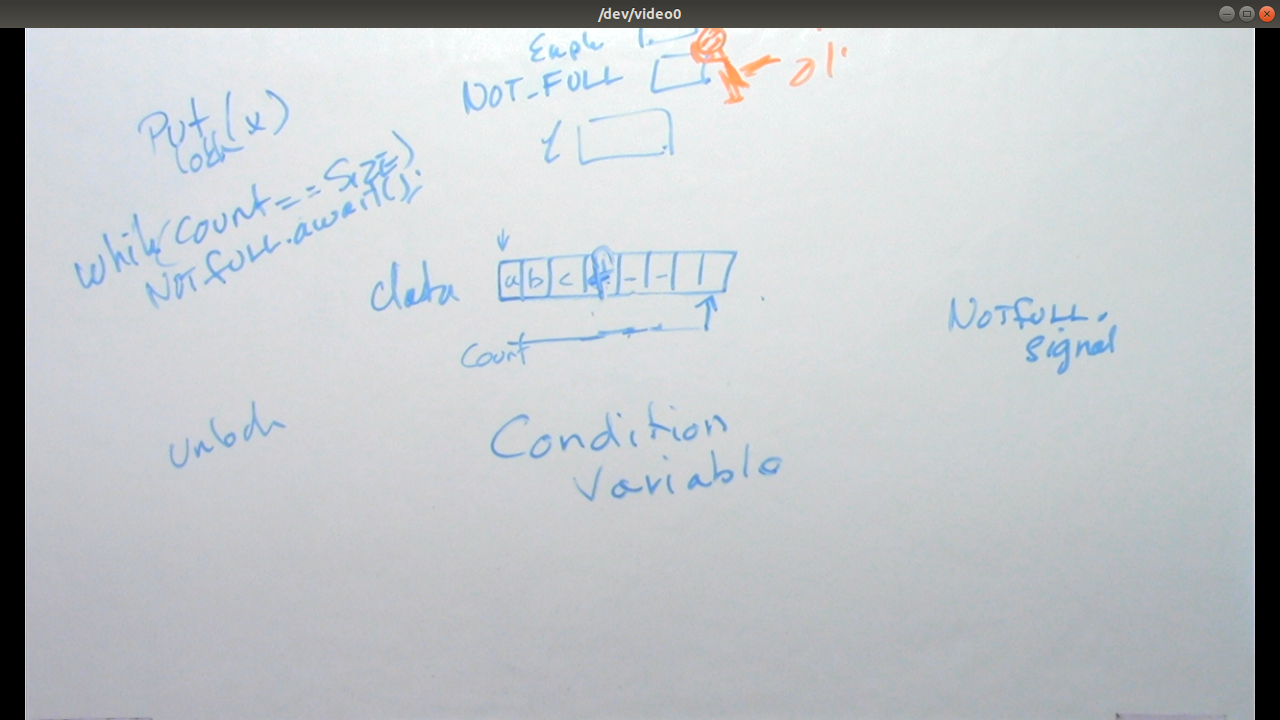 /dev/video0
NOT_FULL
Put(x)
lock
while(count==SIZE)
NOTFULL.await();
l
data
a b c
count
NOTFULL.
signal
unlock
Condition
Variable